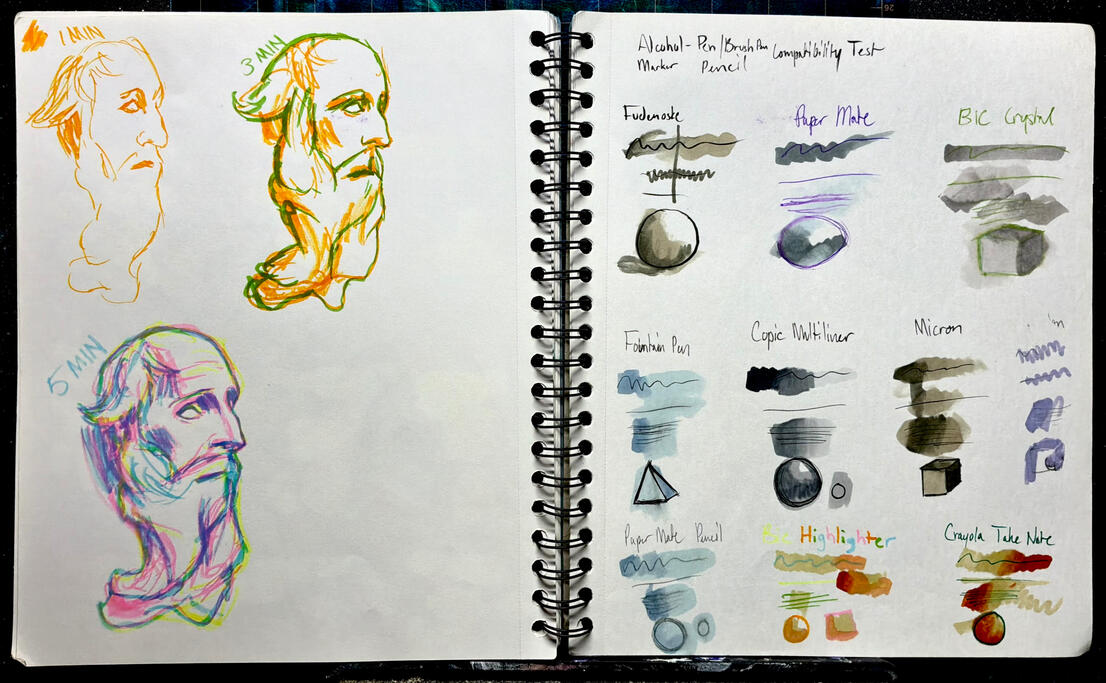 1 MIN
3 MIN
5 MIN
Alcohol-Pen/Brush Pen Compatibility Test
Marker Pencil
Fudenoske
Paper Mate
BIC Crystal
Fountain Pen
Copic Multiliner
Micron
Paper Mate Pencil
Bic Highlighter
Crayola Take Note
26